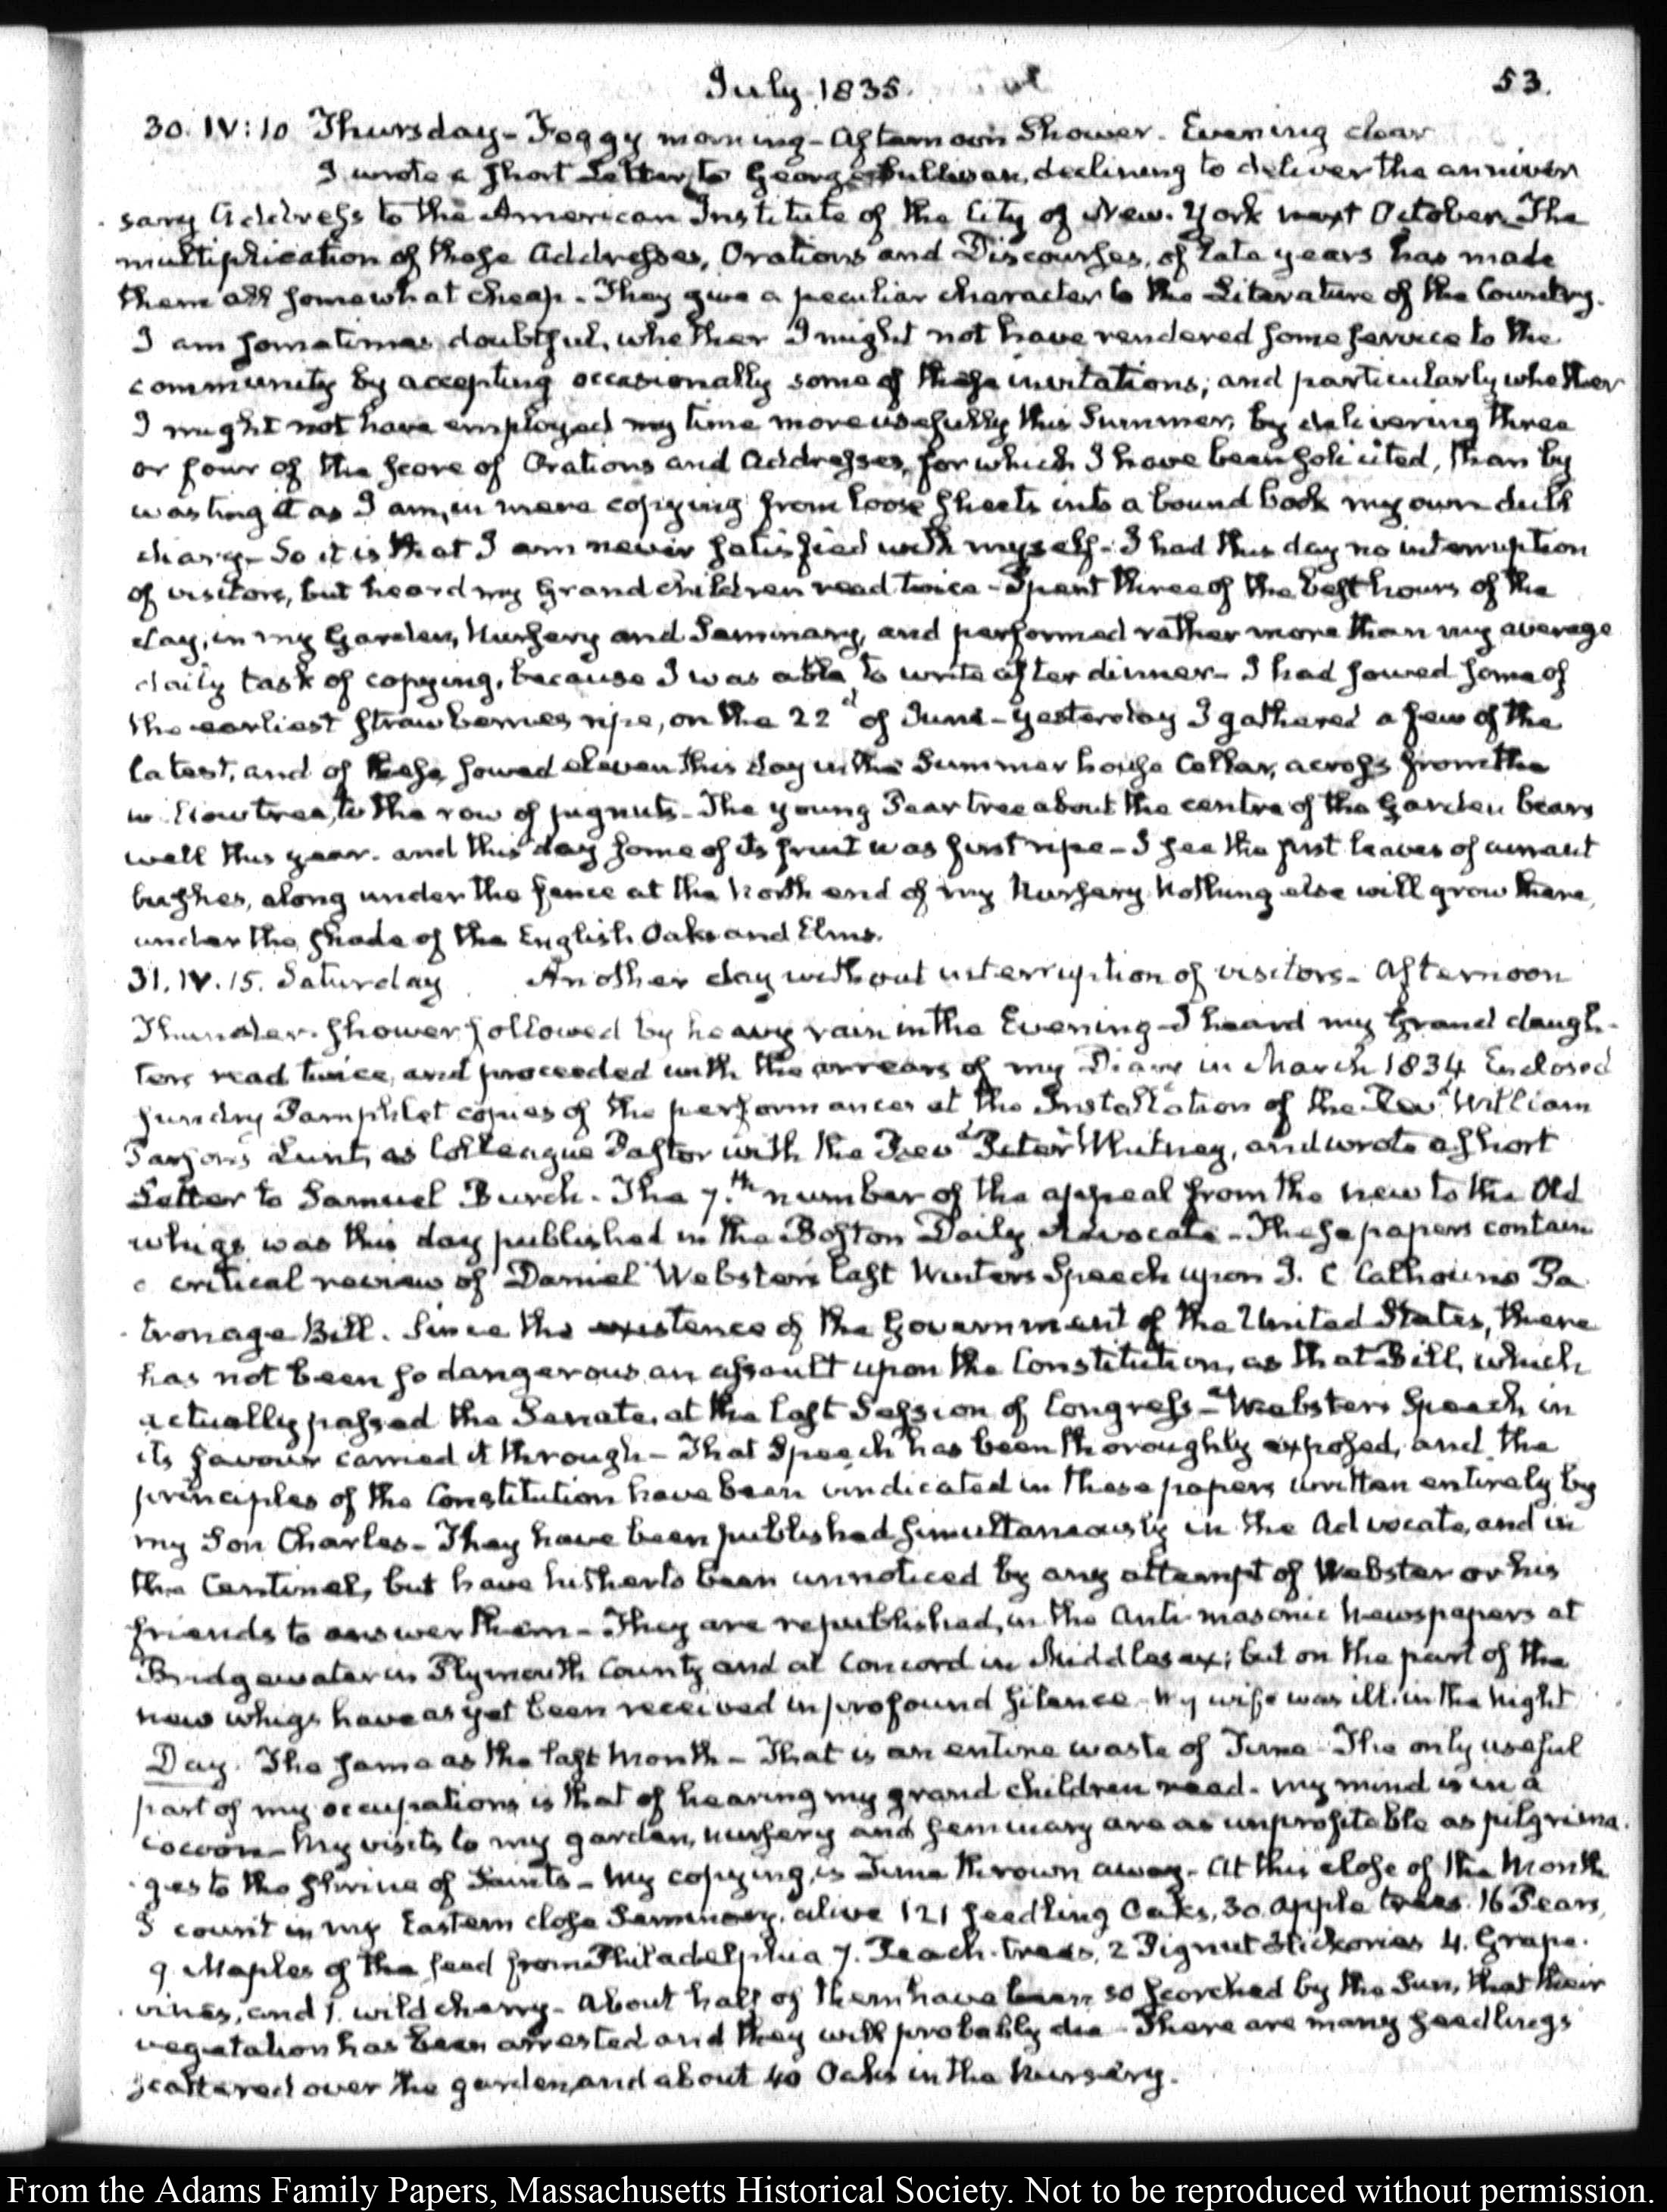 July 1835.
53.
30. IV:10 Thursday - Foggy morning - Afternoon Shower. Evening clear
I wrote a short Letter to George Sullivan, declining to deliver the anniver
sary Address to the American Institute of the City of New-York next October. The
multiplication of these Addresses, Orations and Discourses, of late years has made
them all somewhat cheap - They give a peculiar character to the Literature of the Country.
I am sometimes doubtful, whether I might not have rendered some service to the
community by accepting occasionally some of these invitations; and particularly whether
I might not have employed my time more usefully this Summer, by delivering three
or four of the score of Orations and Addresses, for which I have been solicited, than by
wasting it as I am, in mere copying from loose sheets into a bound book my own dull
diary - So it is that I am never satisfied with myself - I had this day no interruption
of visitors, but heard my Grand children read twice - Spent three of the best hours of the
day, in my Garden, Nursery and Seminary, and performed rather more than my average
daily task of copying, because I was able to write after dinner - I had sowed some of
the earliest strawberries ripe, on the 22d of June - yesterday I gathered a few of the
latest, and of these sowed eleven this day in the Summer house Cellar, across from the
willow tree, to the row of pignuts - The young Pear tree about the centre of the Garden bears
well this year. and this day some of its fruit was first ripe - I see the first leaves of currant
bushes, along under the fence at the North end of my Nursery Nothing else will grow there,
under the shade of the English Oaks and Elms.
31. IV. 15. Saturday Another day without interruption of visitors - Afternoon
Thunder-shower followed by heavy rain in the Evening - I heard my Grand daugh-
ters read twice, and proceeded with the arrears of my Diary in March 1834 Enclosed
sundry Pamphlet copies of the performances at the Installation of the Revd William
Parsons Lunt, as Colleague Pastor with the Revd Peter Whitney, and wrote a short
Letter to Samuel Burch - The 7th number of the appeal from the new to the Old
whigs was this day published in the Boston Daily Advocate - These papers contain
a critical review of Daniel Webster's last Winters Speech upon J. C Calhouns Pa
tronage Bill. Since the existence of the Government of the United States, there
has not been so dangerous an assault upon the Constitution, as that Bill, which
actually passed the Senate, at the last Session of Congress - Websters Speech in
its favour carried it through - That Speech has been thoroughly exposed, and the
principles of the Constitution have been vindicated in these papers written entirely by
my Son Charles - They have been published simultaneously in the Advocate, and in
the Centinel, but have hitherto been unnoticed by any attempt of Webster or his
friends to answer them - They are republished, in the Anti-masonic Newspapers at
Bridgewater in Plymouth County and at Concord in Middlesex; but on the part of the
new whigs have as yet been received in profound silence - My wife was ill in the Night
Day. The same as the last Month - That is an entire waste of Time - The only useful
part of my occupations is that of hearing my grand children read. my mind is in a
cocoon - My visits to my garden, nursery and seminary are as unprofitable as pilgrima-
ges to the shrine of Saints - My copying, is Time thrown away - At this close of the Month
I count in my Eastern close Seminary, alive 121 seedling Oaks, 30 apple trees. 16 Pears,
9. Maples of the seed from Philadelphia 7. Peach-trees, 2 Pignut Hickories 4. Grape-
vines, and 1. wild cherry - About half of them have been so scorched by the Sun, that their
vegetation has been arrested and they will probably die - There are many seedlings
scattered over the garden, and about 40 Oaks in the Nursery.
From the Adams Family Papers, Massachusetts Historical Society. Not to be reproduced without permission.